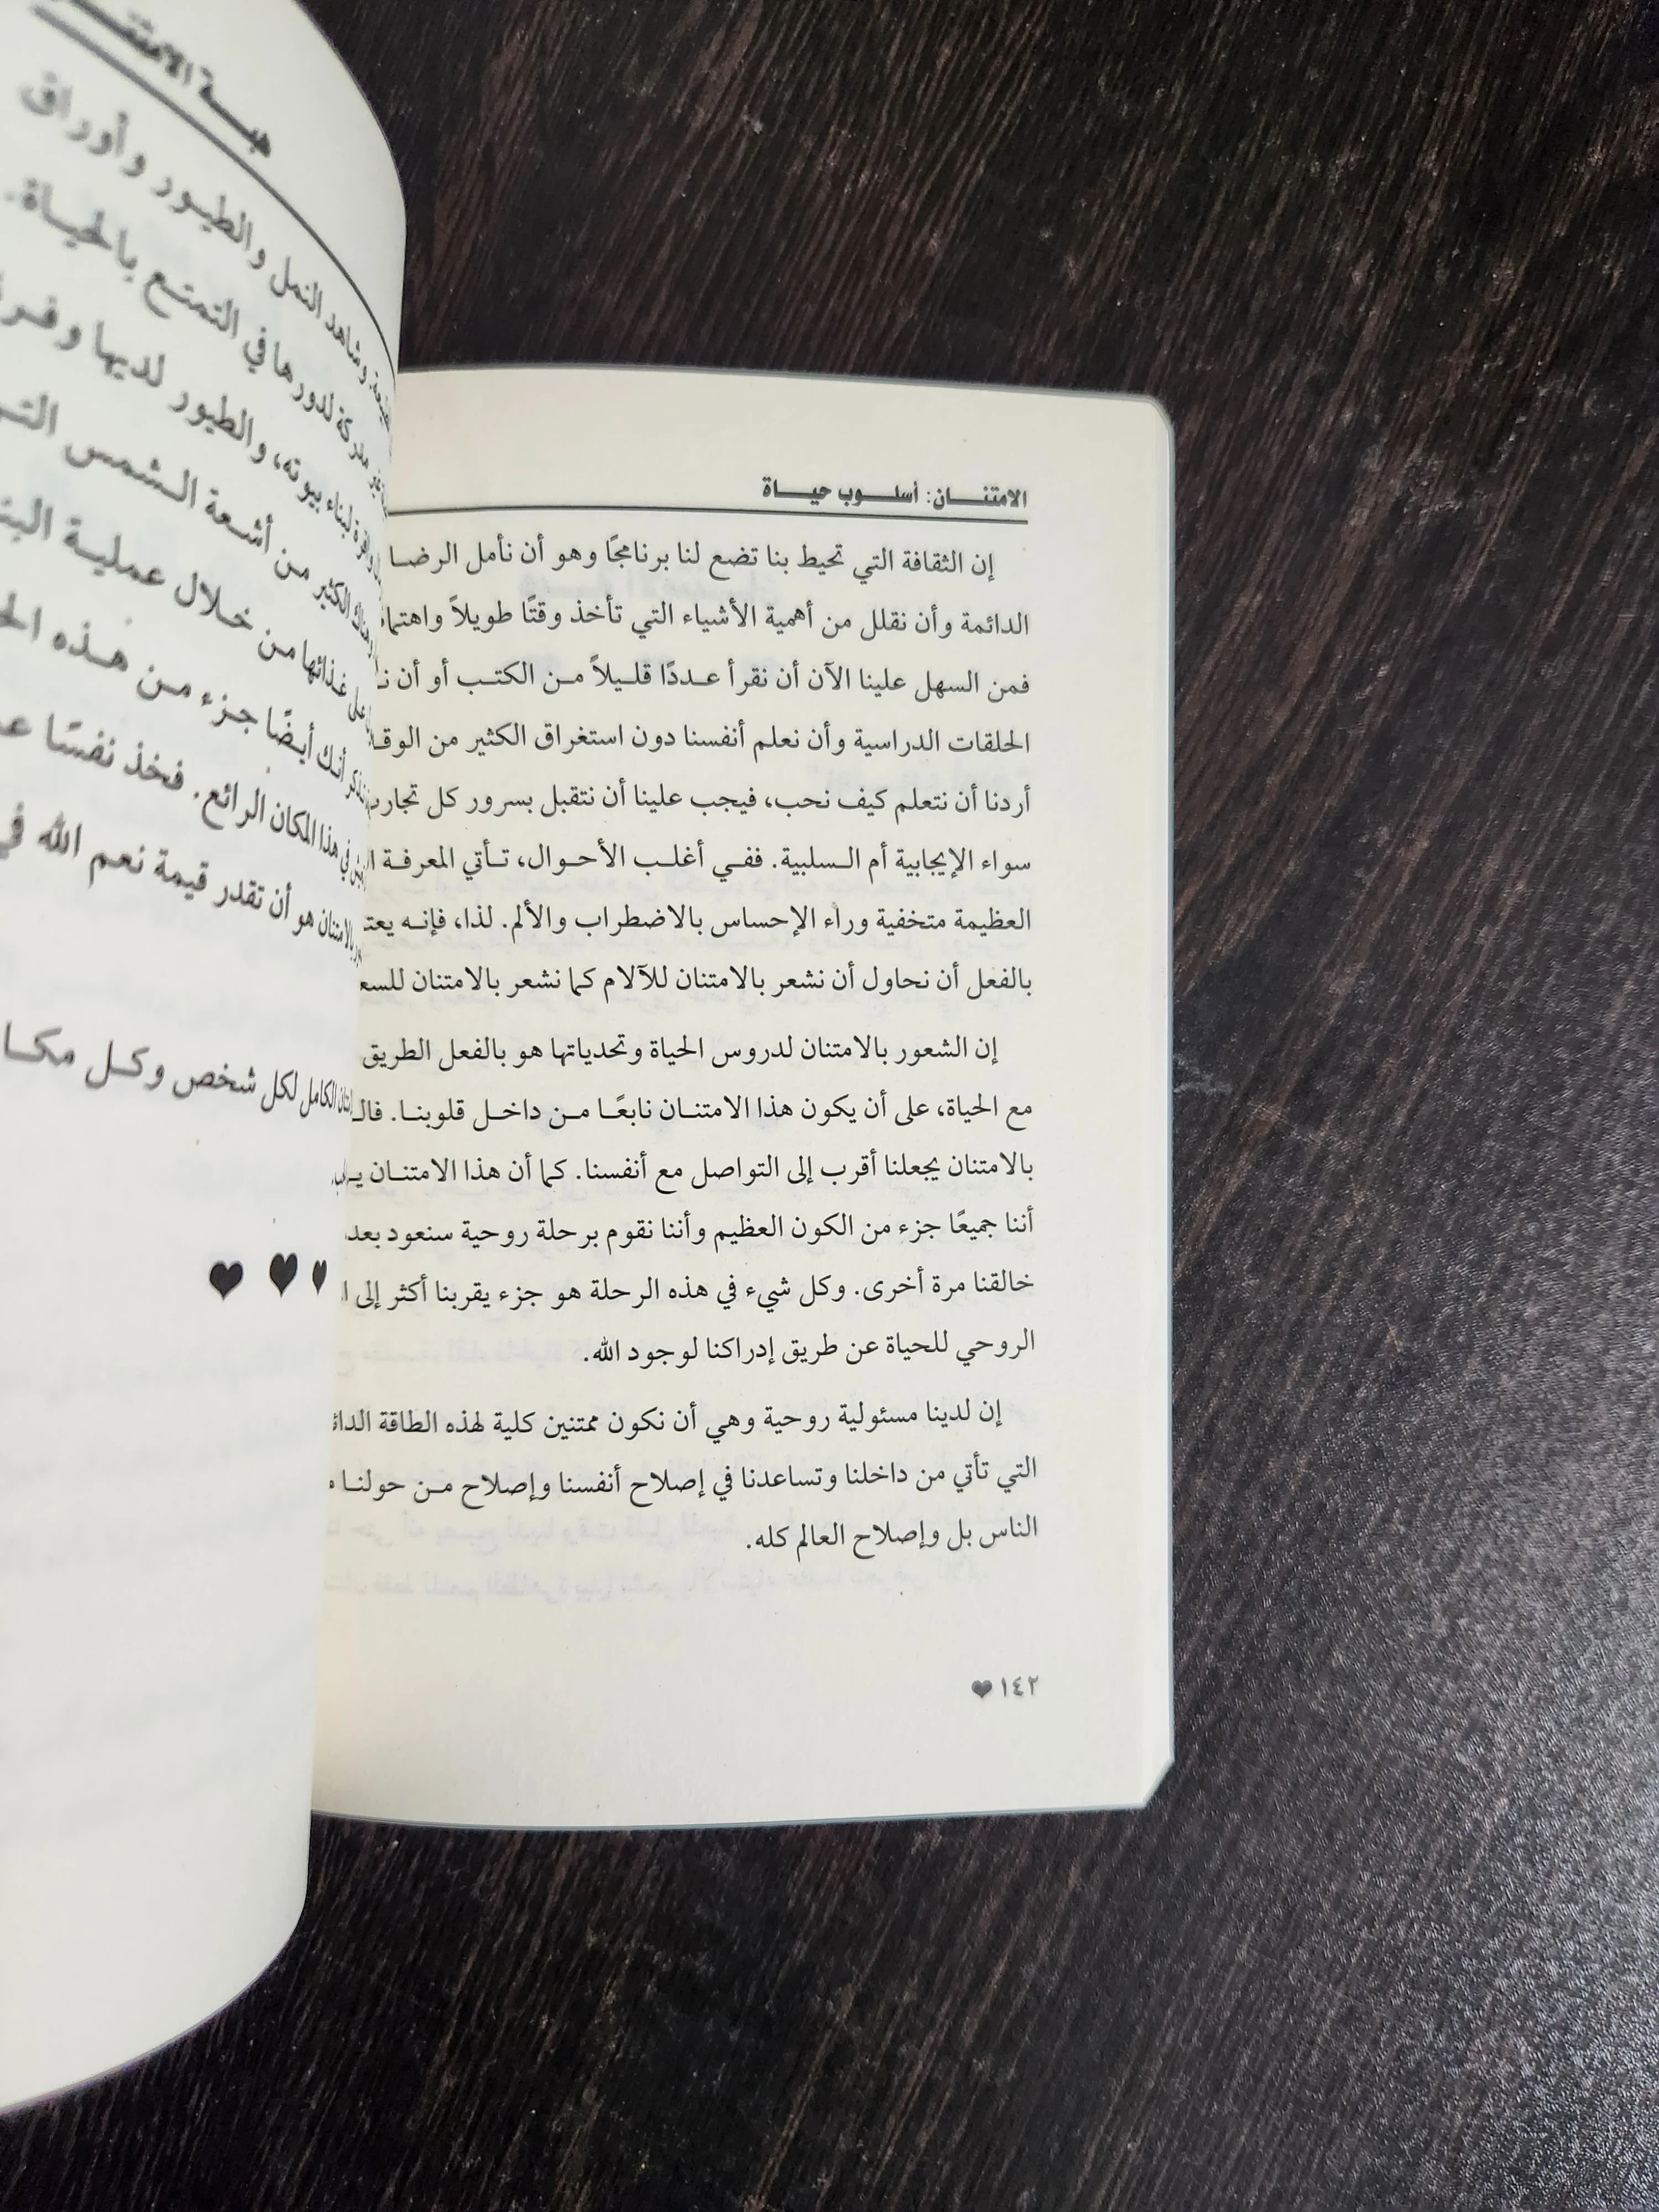 الامتنان: أسلوب حياة
إن الثقافة التي تحيط بنا تضع لنا برنامجًا وهو أن نأمل الرضا
الدائمة وأن نقلل من أهمية الأشياء التي تأخذ وقتًا طويلاً
فمن السهل علينا الآن أن نقرأ عددًا قليلاً من الكتب أو أن
الحلقات الدراسية وأن نعلم أنفسنا دون استغراق الكثير من
أردنا أن نتعلم كيف نحب، فيجب علينا أن نتقبل بسرور كل
سواء الإيجابية أم السلبية. ففي أغلب الأحوال، تأتي المعرفة
العظيمة متخفية وراء الإحساس بالاضطراب والألم. لذا، فإنه
بالفعل أن نحاول أن نشعر بالامتنان للآلام كما نشعر بالامتنان
إن الشعور بالامتنان لدروس الحياة وتحدياتها هو بالفعل الطريق
مع الحياة، على أن يكون هذا الامتنان نابعًا من داخل قلوبنا.
بالامتنان يجعلنا أقرب إلى التواصل مع أنفسنا. كما أن هذا الامتنان
أننا جميعًا جزء من الكون العظيم وأننا نقوم برحلة روحية سنعود
خالقنا مرة أخرى. وكل شيء في هذه الرحلة هو جزء يقربنا أكثر إلى
الروحي للحياة عن طريق إدراكنا لوجود الله.
إن لدينا مسئولية روحية وهي أن نكون ممتنين كلية لهذه الطاقة
التي تأتي من داخلنا وتساعدنا في إصلاح أنفسنا وإصلاح من حولنا
الناس بل وإصلاح العالم كله.
١٤٢
هبة
وشاهد النمل والطيور وأوراق
لدورها في التمتع بالحياة.
لبناء بيوته، والطيور لديها
الكثير من أشعة الشمس
على غذائها من خلال عملية
أنك أيضًا جزء من هذه
في هذا المكان الرائع. فخذ نفسًا
هو أن تقدر قيمة نعم الله في
الكامل لكل شخص وكل